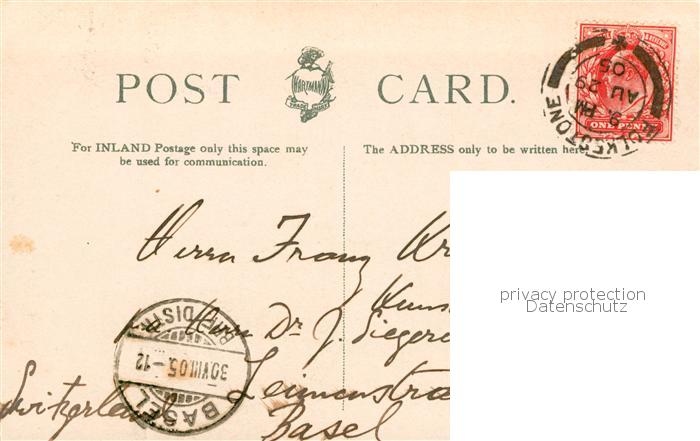 POST CARD.
HARTMANN
TRADE MARK
For INLAND Postage only this space may
be used for communication.
The ADDRESS only to be written here.
FOLKESTONE
9. PM
AU 29
05
ONE PENNY
Herrn Franz
Herrn Dr. J.
Leimenstra
Basel
Switzerland
BASEL
30.VIII.05.-12
BRF. DISTR.
privacy protection
Datenschutz